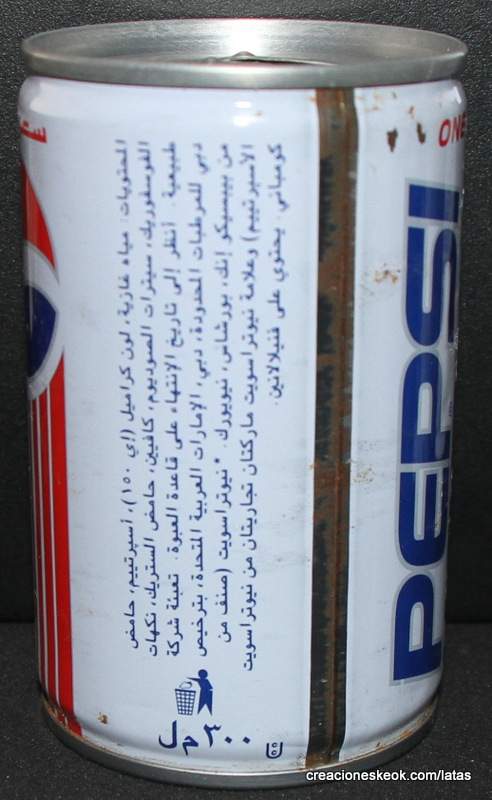 المحتويات: مياه غازية، لون كراميل (إي ١٥٠)، أسبرتييم، حامض
الفوسفوريك، سيترات الصوديوم، كافيين، حامض الستريك، نكهات
طبيعية. أنظر إلى تاريخ الإنتهاء على قاعدة العبوة. تعبئة شركة
دبي للمرطبات المحدودة، دبي، الإمارات العربية المتحدة، بترخيص
من بيبسيكو إنك، بورشاس، نيويورك. *نيوتراسويت (صنف من
الأسبرتييم) وعلامة نيوتراسويت ماركتان تجاريتان من نيوتراسويت
كومباني. يحتوي على فنيلالانين.
٣٠٠ م ل
ONE
PEPSI
creacioneskeok.com/latas